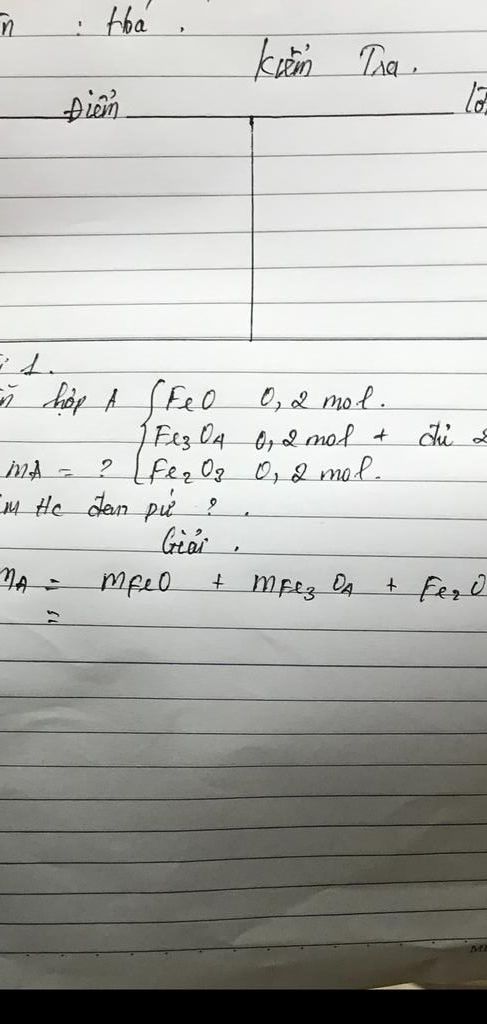 : Hoá.
Kiểm Tra.
Điểm
1.
hợp A { FeO 0,2 mol.
Fe3O4 0,2 mol + đủ 2
mA = ? Fe2O3 0,2 mol.
Hc đem pứ ?.
Giải.
mA = mFeO + mFe3O4 + Fe2O
=